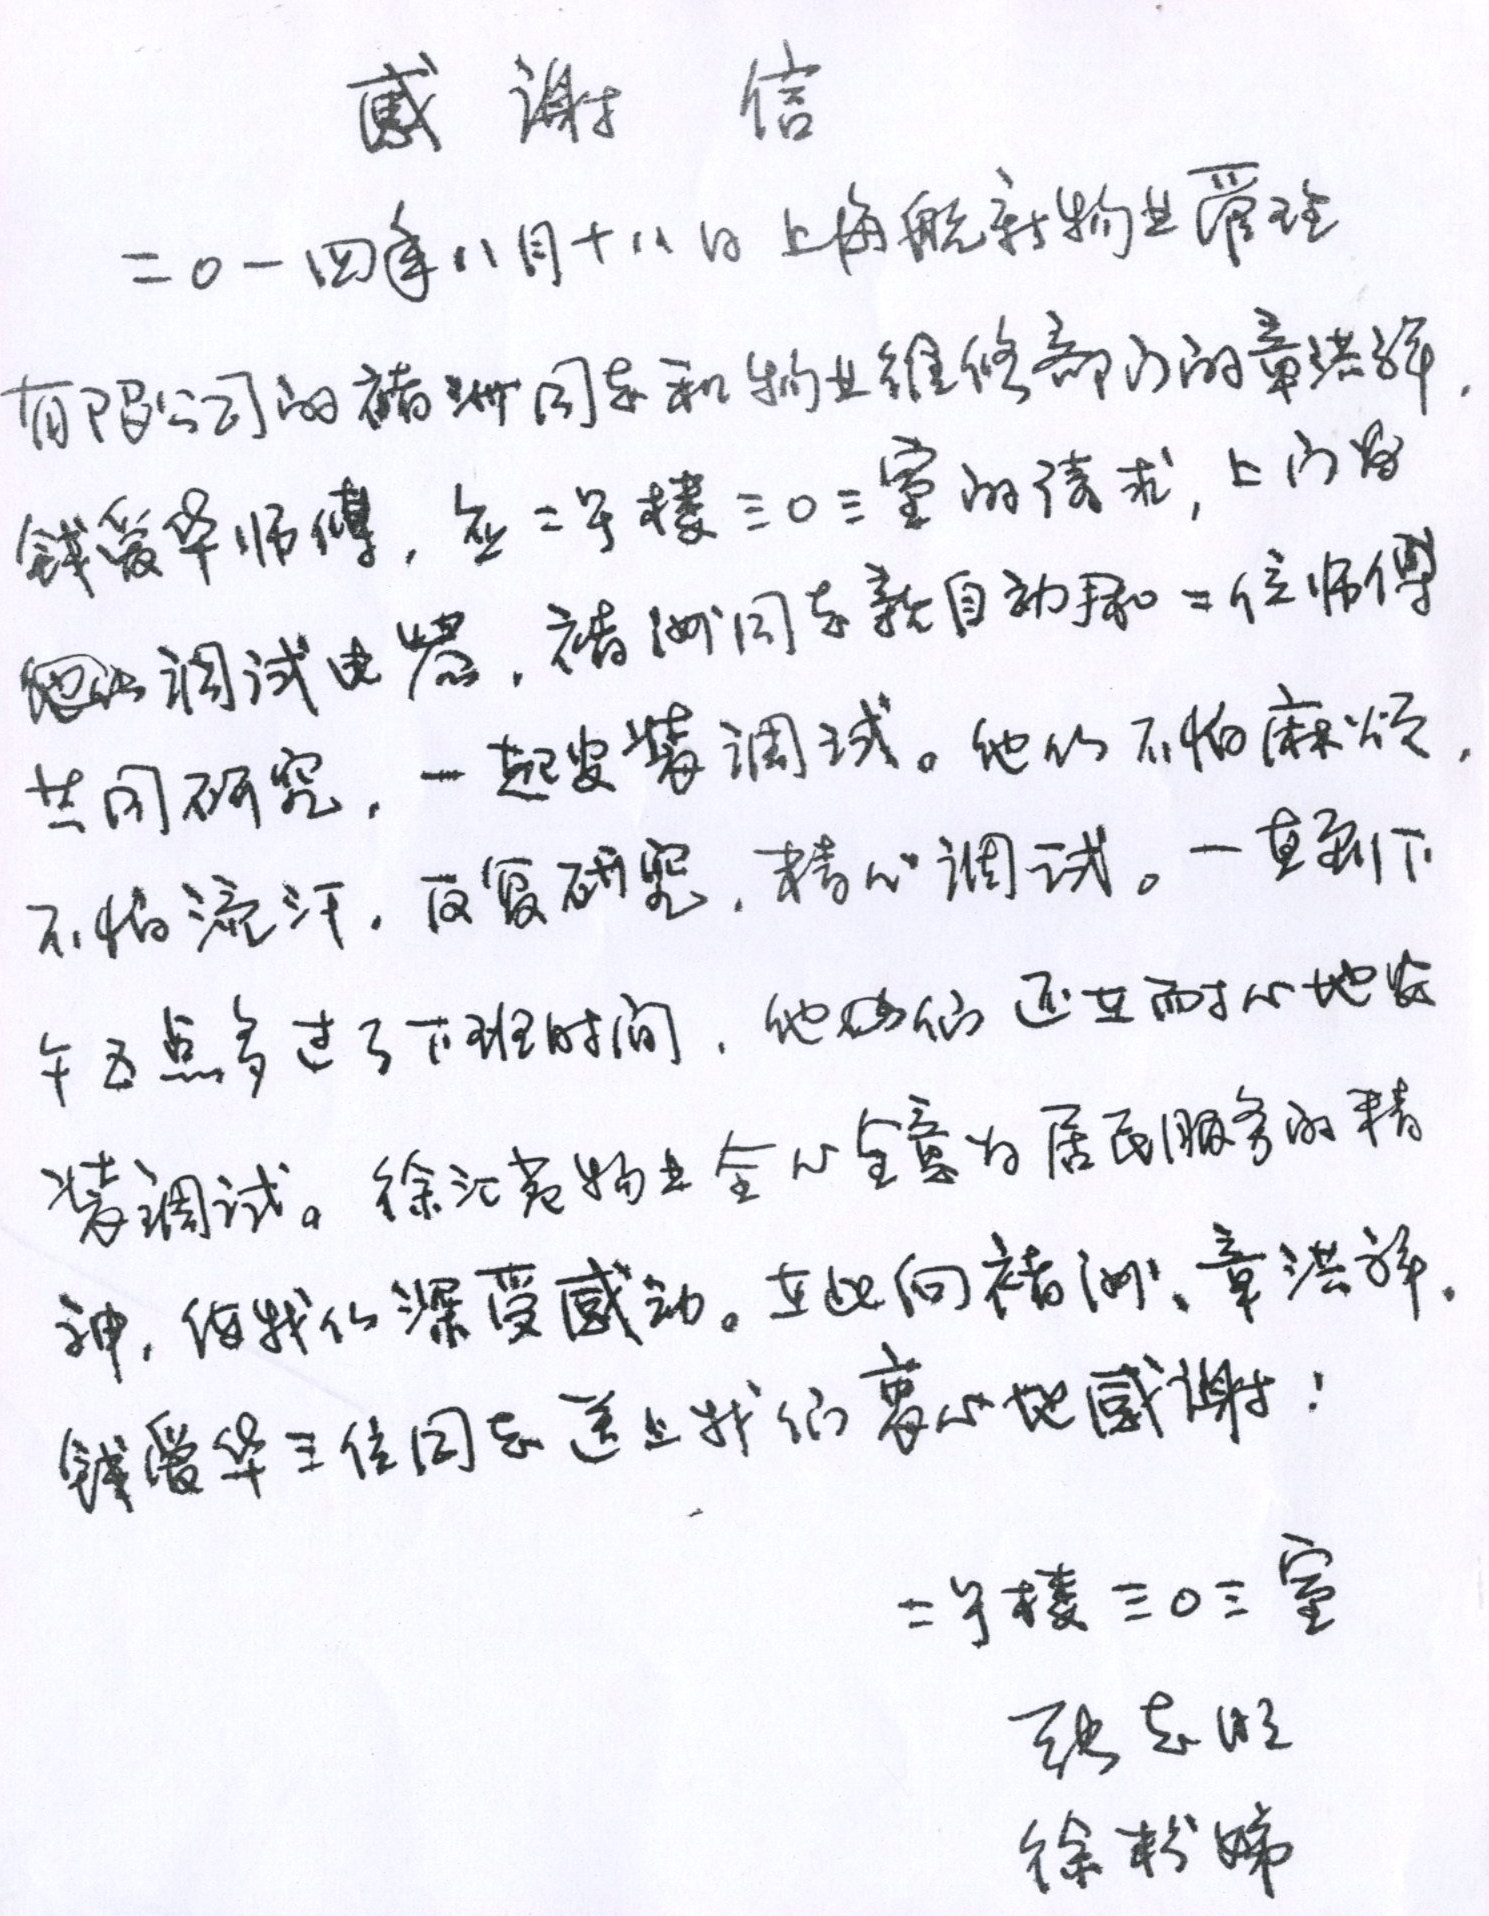 感谢信
二0一四年八月十八日上海航新物业管理
有限公司的褚洲同志和物业维修部门的章洪祥、
钱爱华师傅，应二号楼三0三室的请求，上门为
调试电器，褚洲同志亲自动手和二位师傅
共同研究，一起安装调试。他们不怕麻烦，
不怕流汗，反复研究，精心调试。一直到下
午五点多过了下班时间，他们还在耐心地安
装调试。徐汇苑物业全心全意为居民服务的精
神，使我们深受感动。在此向褚洲、章洪祥、
钱爱华三位同志送上我们衷心地感谢！
二号楼三0三室
志旺
徐松娣